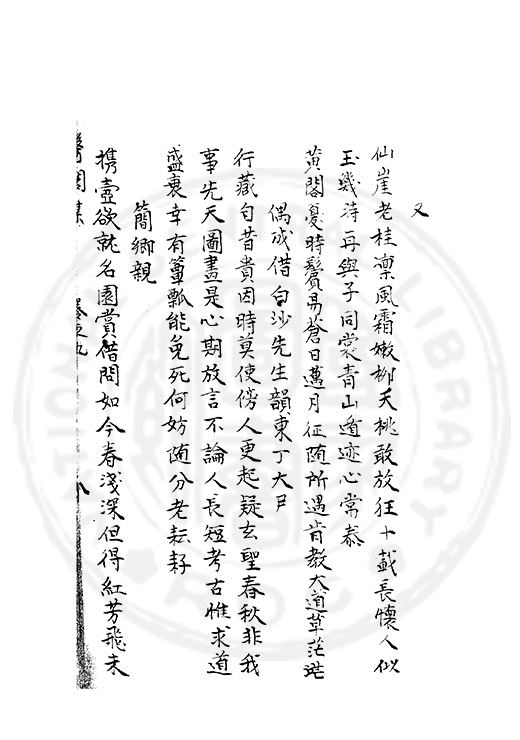 又
仙崖老桂凛風霜嫩柳夭桃敢放狂十載長懷人似
玉幾時再與子同裳青山遁迹心常泰
黄閣憂時鬢易蒼日邁月征随所遇肯教大道草茫茫
偶成借白沙先生韻東丁大尸
行藏自昔貴因時莫使傍人更起疑玄聖春秋非我
事先天圖畫是心期放言不論人長短考古惟求道
盛衰幸有簞瓢能免死何妨随分老耘耔
簡鄉親
携壺欲就名園賞借問如今春淺深但得紅芳飛未